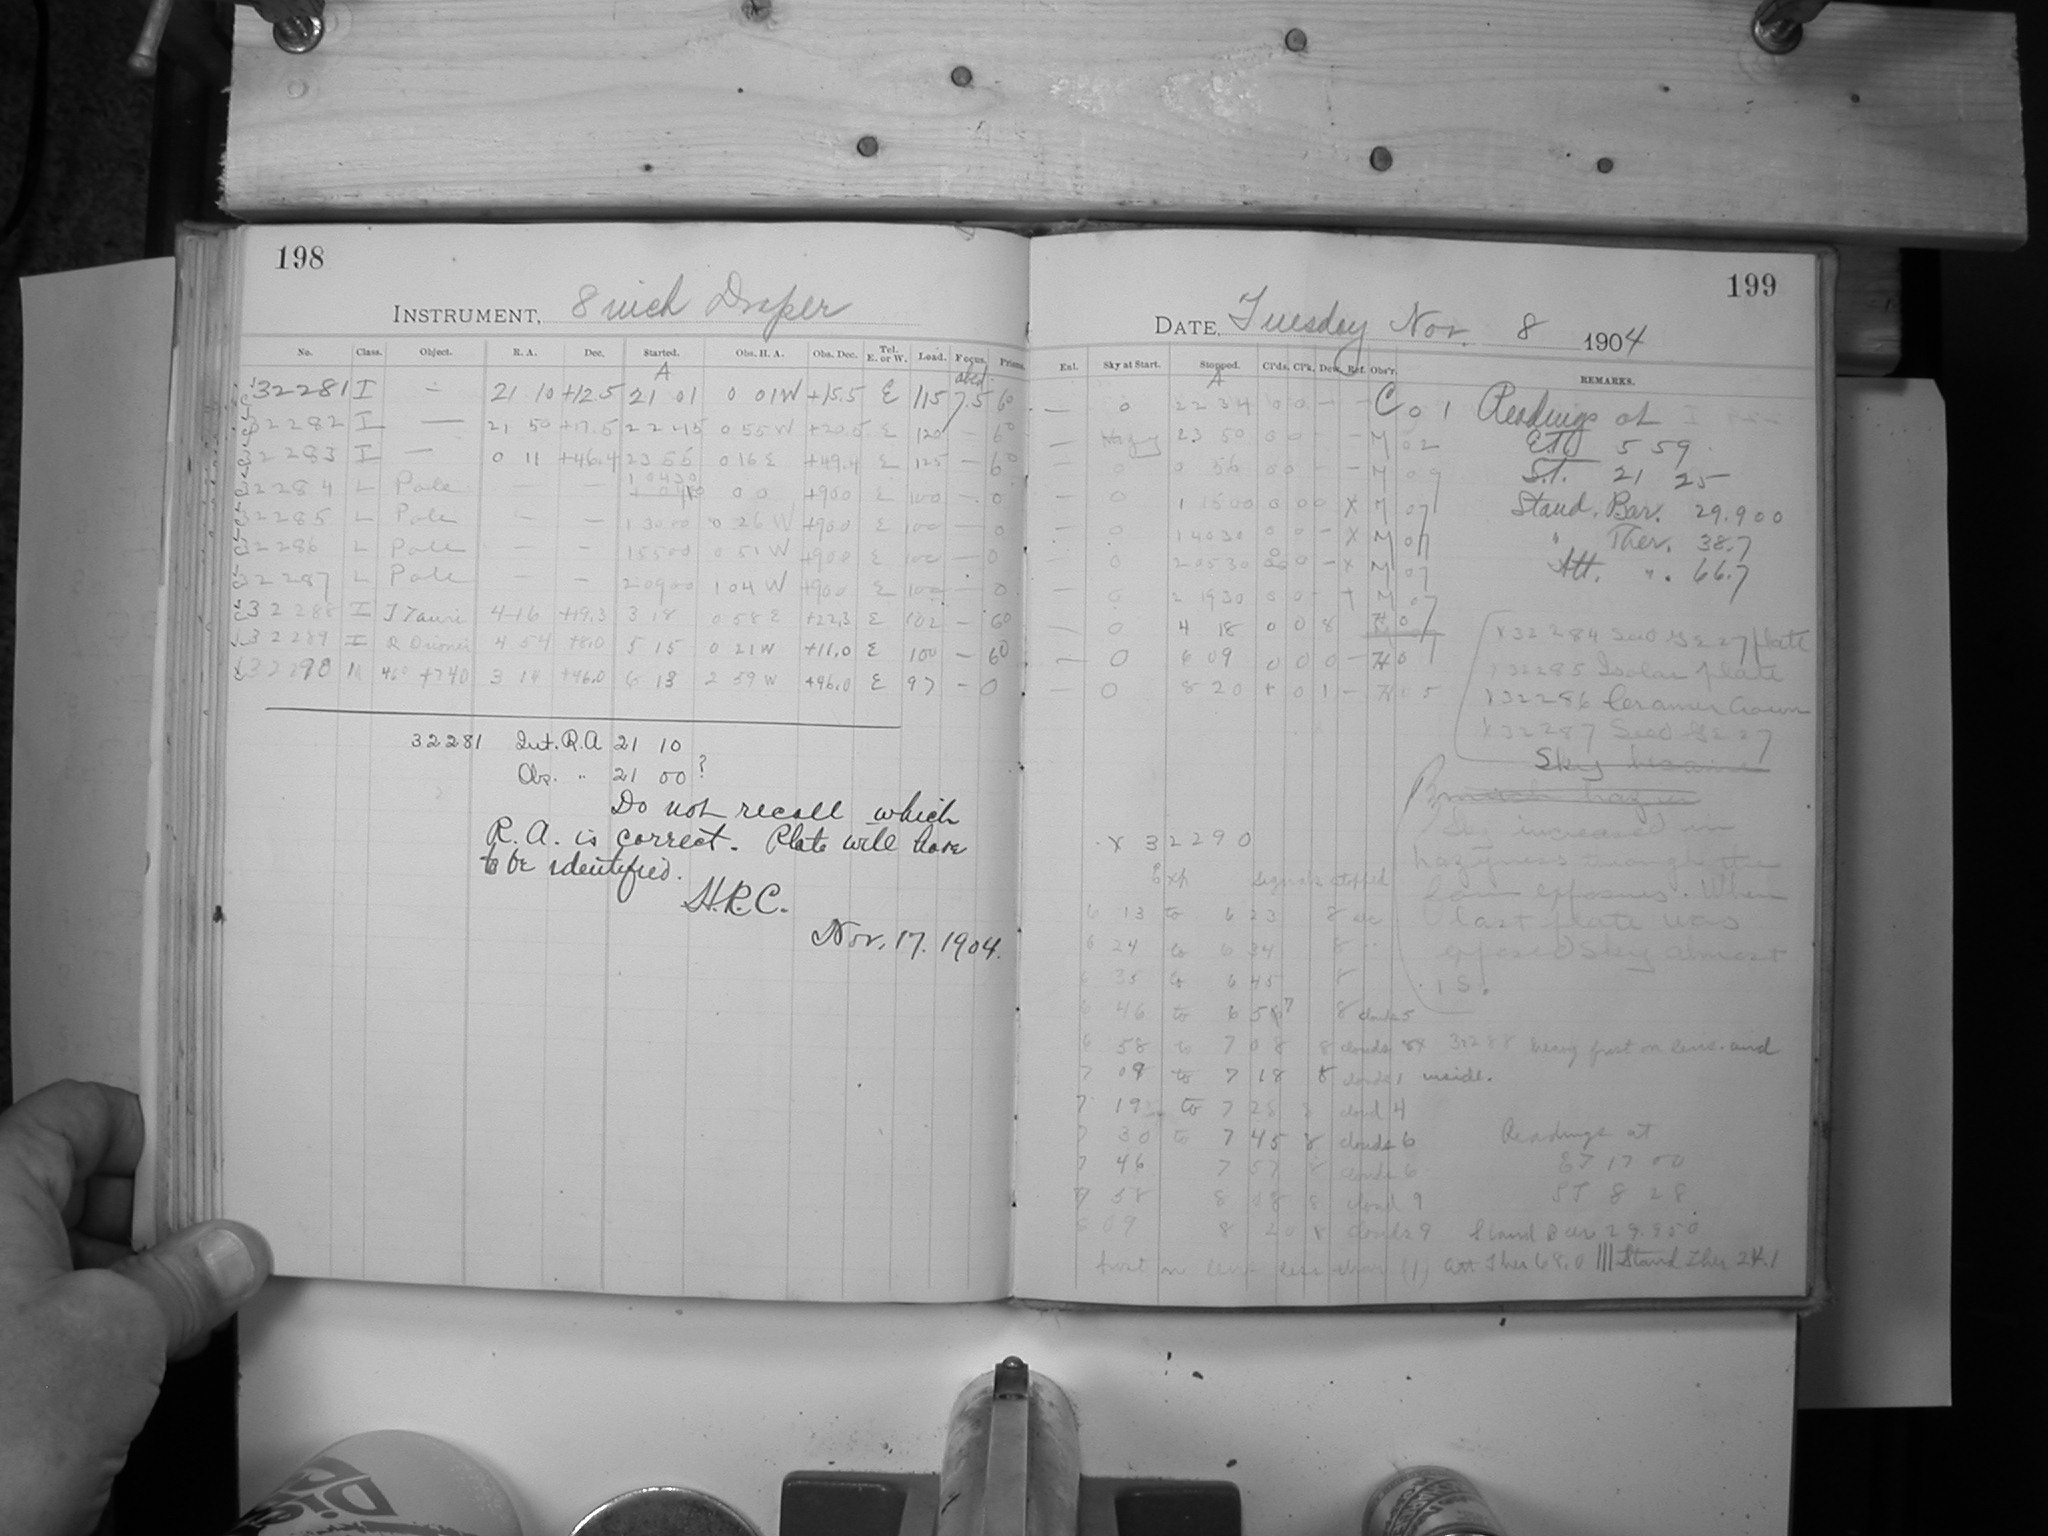 198
INSTRUMENT, 8 inch Draper
No. Class. Object. R. A. Dec. Started. Obs. H. A. Obs. Dec. Tel. E. or W. Load. Focus. Prisms.
A
32281 I — 21 10 +12.5 21 01 0 01 W +15.5 E 115 7.5 60
32282 I — 21 50 +17.5 22 45 0 55 W +20.5 E 120 — 60
32283 I — 0 11 +46.4 23 55 0 16 E +49.4 E 125 — 60
32284 L Pole — — 1 04 30 0 0 +900 E 100 — 0
32285 L Pole — — 1 30 00 0 26 W +900 E 100 — 0
32286 L Pole — — 1 55 00 0 51 W +900 E 100 — 0
32287 L Pole — — 2 09 00 1 04 W +900 E 100 — 0
32288 I T Tauri 4 16 +19.3 3 18 0 58 E +22.3 E 102 — 60
32289 I R Orionis 4 54 +8.0 5 15 0 21 W +11.0 E 100 — 60
32290 46° +740 3 14 +46.0 6 13 2 59 W +46.0 E 97 — 0
32281 Int. R.A 21 10
Obs. " 21 00 ?
Do not recall which
R. A. is correct. Plate will have
to be identified.
H.R.C.
Nov. 17. 1904.
199
DATE, Tuesday Nov. 8 1904
Enl. Sky at Start. Stopped. Cl'ds. Cl'k. Dew. Ref. Obs'r. REMARKS.
A
— 0 22 34 0 0 — — C 01 Readings at
— Hazy 23 50 0 0 — — M 02 E.T. 5 59
— 0 0 56 0 0 — — M 09 S.T. 21 25
— 0 1 15 00 0 0 0 X M 07 Stand. Bar. 29.900
0 1 40 30 0 0 — X M 07 " Ther. 38.7
0 2 05 30 0 — X M 07 Att. " 66.7
0 2 19 30 0 0 — M 07
— 0 4 18 0 0 8 H 07
— 0 6 09 0 0 0 — H 07
— 0 8 20 0 1 — H 5
X 32284 Seed 27 plate
X 32285 Isolar plate
X 32286 Cramer Crown
X 32287 Seed 27
Sky became
much hazier
Sky increased in
hazyness through the
four exposures. When
last plate was
exposed sky almost
15.
X 32290
Exp signals stopped
6 13 to 6 23 8 sec
6 24 to 6 34 8 "
6 35 to 6 45 8
6 46 to 6 57 8 clouds 5
6 58 to 7 08 8 clouds 8
7 09 to 7 18 8 clouds 1
7 19 to 7 28 8 cloud 4
7 30 to 7 45 8 clouds 6
7 46 7 57 8 clouds 6
7 58 8 08 8 cloud 9
8 09 8 20 8 clouds 9
frost on lens less than
X 32288 heavy frost on lens. and
inside.
Readings at
ET 17 00
ST 8 28
Stand Bar 29.950
Att Ther 68.0 ||| Stand Ther 24.1